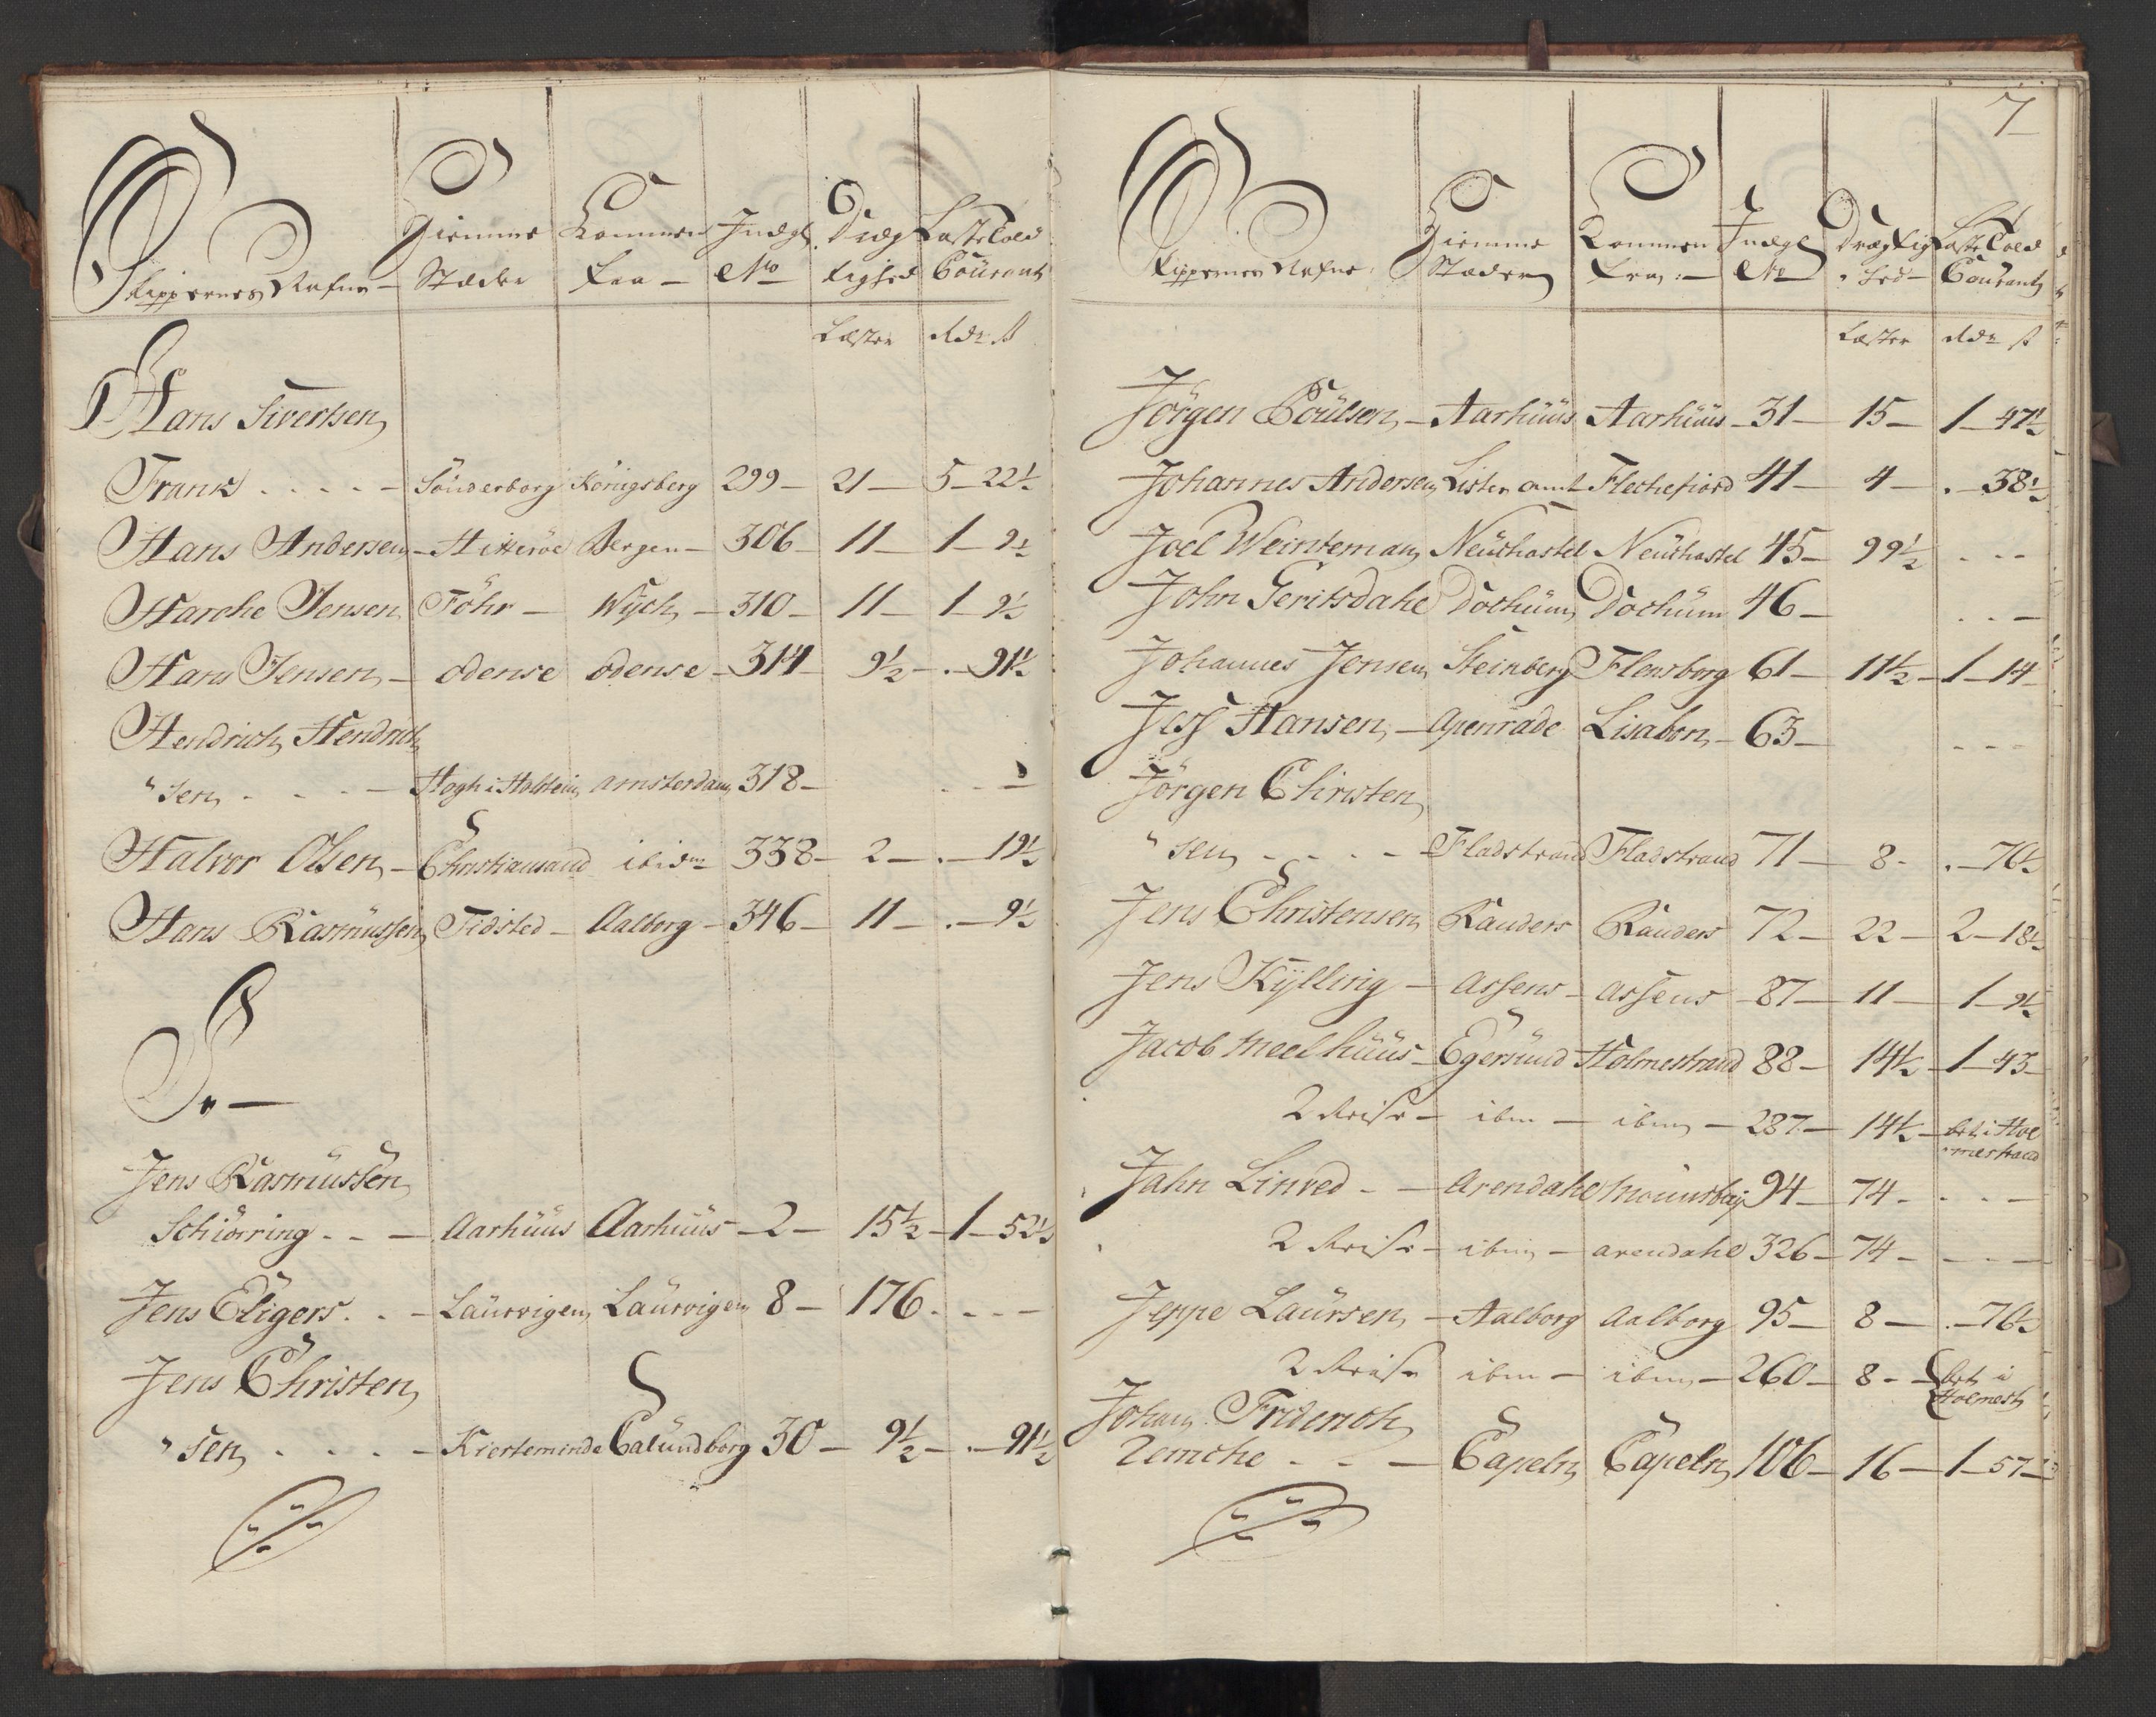 Skippernes Nafne - Hiemme Kommen Indgl. Dræg Laste Told
Stæder fra - No tighed Courant
Læster Rdr. s
Hans Sivertsen
Frank . . . . - Sönderborg Königsberg 299 - 21 - 5 - 22½
Hans Andersen - Hitteröe Bergen - 306 11 - 1 - 9½
Harcke Jensen Föhr - Wÿch - 310 - 11 - 1 - 9½
Hans Jensen - Odense Odense - 314 - 9½ - . - 91½
Hendrich Hendrich
"sen . . . - Hogh i Holstein Amsterdam 318 - . . -
Halvor Olsen - Christiansand ibidm 338 - 2 - . - 19½
Hans Rasmussen Tidsted - Aalborg - 346 - 11 - . - 9½
J. -
Jens Rasmussen
Schiörring - - - Aarhüüs Aarhüüs - 2 - 15½ - 1 - 52½
Jens Eligers . . - Laürvigen Laürvigen 8 - 176 . - - -
Jens Christen
"sen . . . . - Kierteminde Calundborg 30 - 9½ - . - 91½
7
Skippernes Nafne Hiemme Kommen Indgl Drægtig Laste Told
Stæder fra :- No "hed - Courant
Læster Rdr s
Jörgen Poülsen - Aarhüüs Aarhüüs - 31 - 15 - 1 - 47½
Johannes Andersen Lister amt Flechefiord 41 - 4 - . - 38½
Joel Weinteman Neüchastel Neüchastel 45 - 99½ - - -
John Geritsdahl Dochüm Dochüm 46 - . . -
Johannes Jensen Steinberg Flensborg 61 - 11½ - 1 - 14 -
Jess Hansen - Apenrade Lisabon - 63 - - - -
Jörgen Christen
"sen - - . - Fladstrand Fladstrand 71 - 8 - . - 76½
Jens Christensen Randers Randers 72 - 22 - 2 - 18½
Jens Kÿlling - Assens - Assens - 87 - 11 - 1 - 9½
Jacob Meelhüüs - Egersünd Holmestrand 88 - 14½ - 1 - 43 -
2 Reise - ibm - ibm - 287 - 14½ - bet: i Hol
"mestrand
Jahn Linved - - Arendahl 94 - 74 - . - -
2 Reise - ibm - arendahl 326 - 74 - - - -
Jeppe Laürsen - Aalborg Aalborg 95 - 8 - . - 76½
2 Reise ibm - ibm - 260 - 8 - - bet i
Holmest
Johan Friderich
Zemche - - - Capeln Capeln 106 - 16 - 1 - 57 -